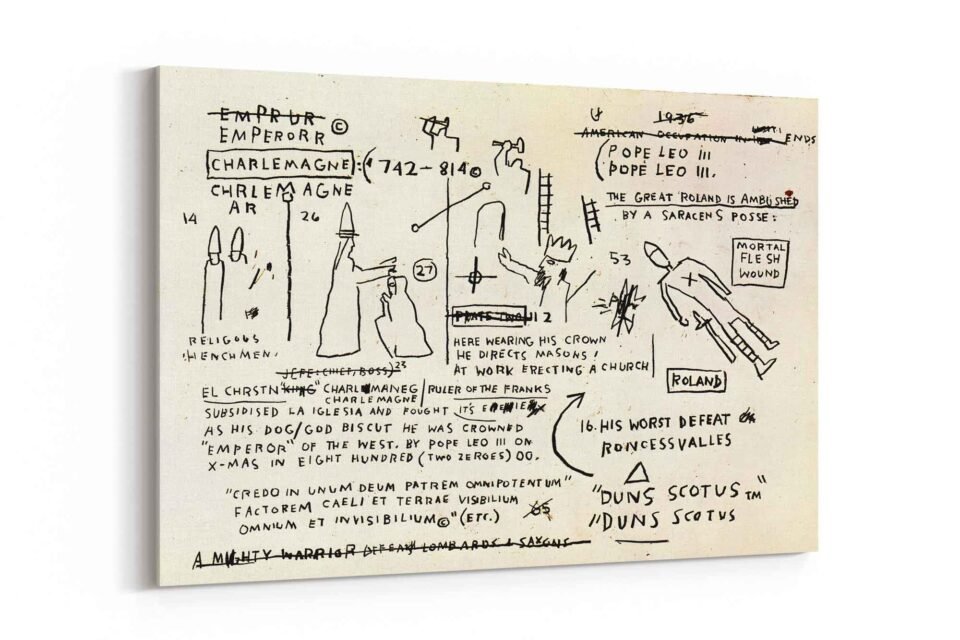 EMPRUR
EMPERORR ©
CHARLEMAGNE : ( 742 - 814 ©
CHRLEMAGNE
AR
14
26
27
RELIGOUS
HENCHMEN.
112
HERE WEARING HIS CROWN
HE DIRECTS MASONS!
AT WORK ERECTING A CHURCH
1936
AMERICAN OCCUPATION IN HAITI ENDS
(POPE LEO III
POPE LEO III.
THE GREAT ROLAND IS AMBUSHED
BY A SARACENS POSSE:
53
MORTAL
FLESH
WOUND
ROLAND
JEFE (CHIEF, BOSS) 23
EL CHRSTN "KING" CHARLMANEG
CHARLEMAGNE
RULER OF THE FRANKS
SUBSIDISED LA IGLESIA AND FOUGHT IT'S
AS HIS DOG/GOD BISCUT HE WAS CROWNED
"EMPEROR" OF THE WEST. BY POPE LEO III ON
X-MAS IN EIGHT HUNDRED (TWO ZEROES) 00.
"CREDO IN UNUM DEUM PATREM OMNIPOTENTUM"
FACTOREM CAELI ET TERRAE VISIBILIUM
OMNIUM ET INVISIBILIUM©" (ETC.) 65
A MIGHTY WARRIOR DEFEAT LOMBARDS & SAXONS
16. HIS WORST DEFEAT
RONCESSVALLES
"DUNS SCOTUS TM"
"DUNS SCOTUS